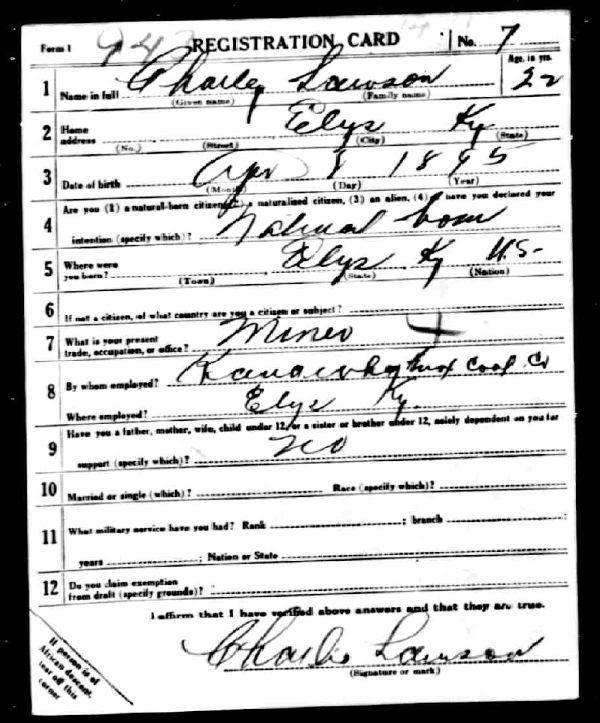 Form 1 REGISTRATION CARD No. 7
1 Name in full Charley Lawson Age, in yrs. 22
(Given name) (Family name)
2 Home address Elys Ky
(No.) (Street) (City) (State)
3 Date of birth Apr 8 1895
(Month) (Day) (Year)
4 Are you (1) a natural-born citizen, (2) a naturalized citizen, (3) an alien, (4) or have you declared your
intention (specify which)? Natural born
5 Where were you born? Elys Ky U.S.
(Town) (State) (Nation)
6 If not a citizen, of what country are you a citizen or subject?
7 What is your present trade, occupation, or office? Miner
8 By whom employed? Coal Co
Where employed? Elys Ky.
9 Have you a father, mother, wife, child under 12, or a sister or brother under 12, solely dependent on you for
support (specify which)? no
10 Married or single (which)? Race (specify which)?
11 What military service have you had? Rank ; branch ;
years ; Nation or State
12 Do you claim exemption from draft (specify grounds)?
I affirm that I have verified above answers and that they are true.
Charlie Lawson
(Signature or mark)
If person is of
African descent,
tear off this
corner